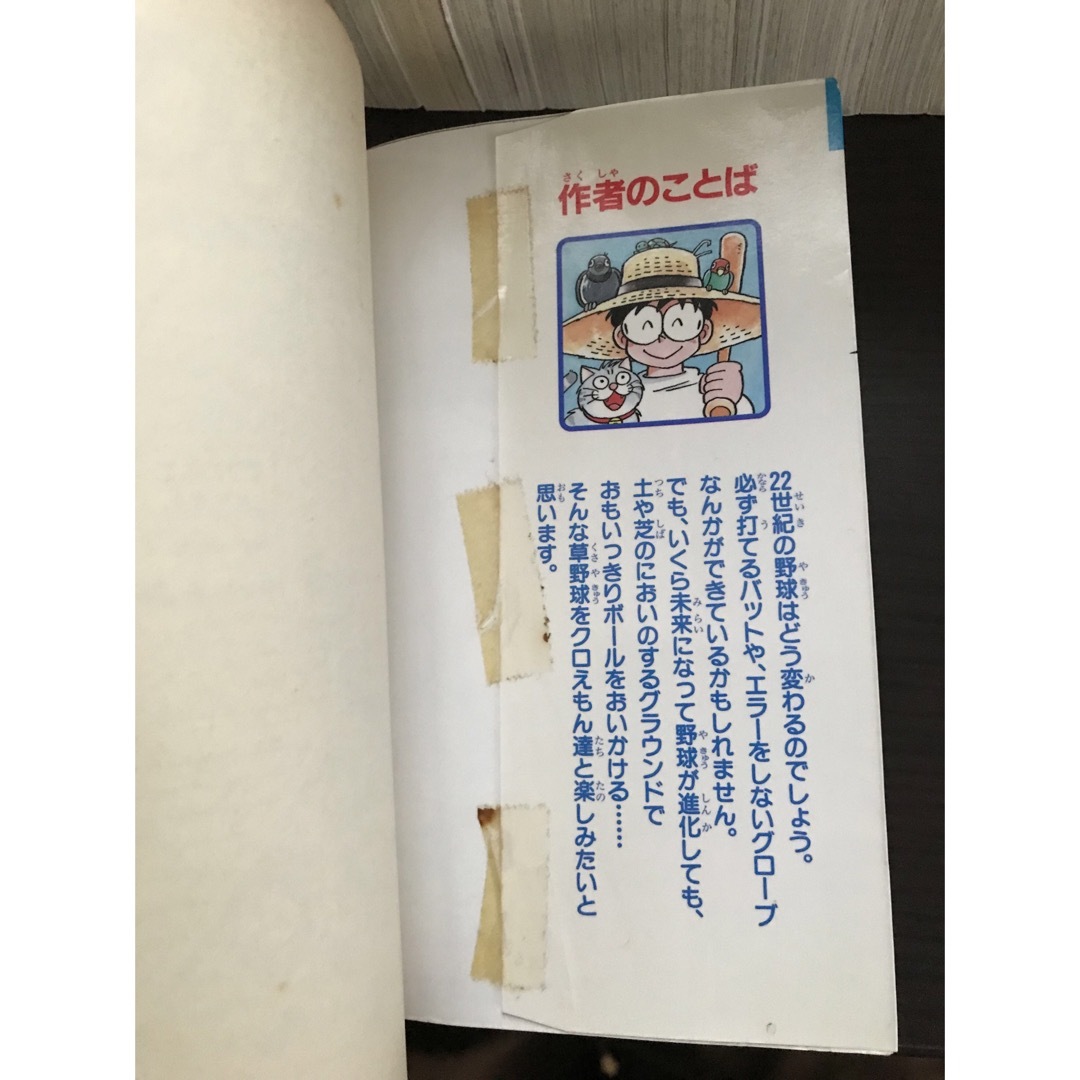 作者のことば
22世紀の野球はどう変わるのでしょう。
必ず打てるバットや、エラーをしないグローブ
なんかができているかもしれません。
でも、いくら未来になって野球が進化しても、
土や芝のにおいのするグラウンドで
おもいっきりボールをおいかける……
そんな草野球をクロえもん達と楽しみたいと
思います。